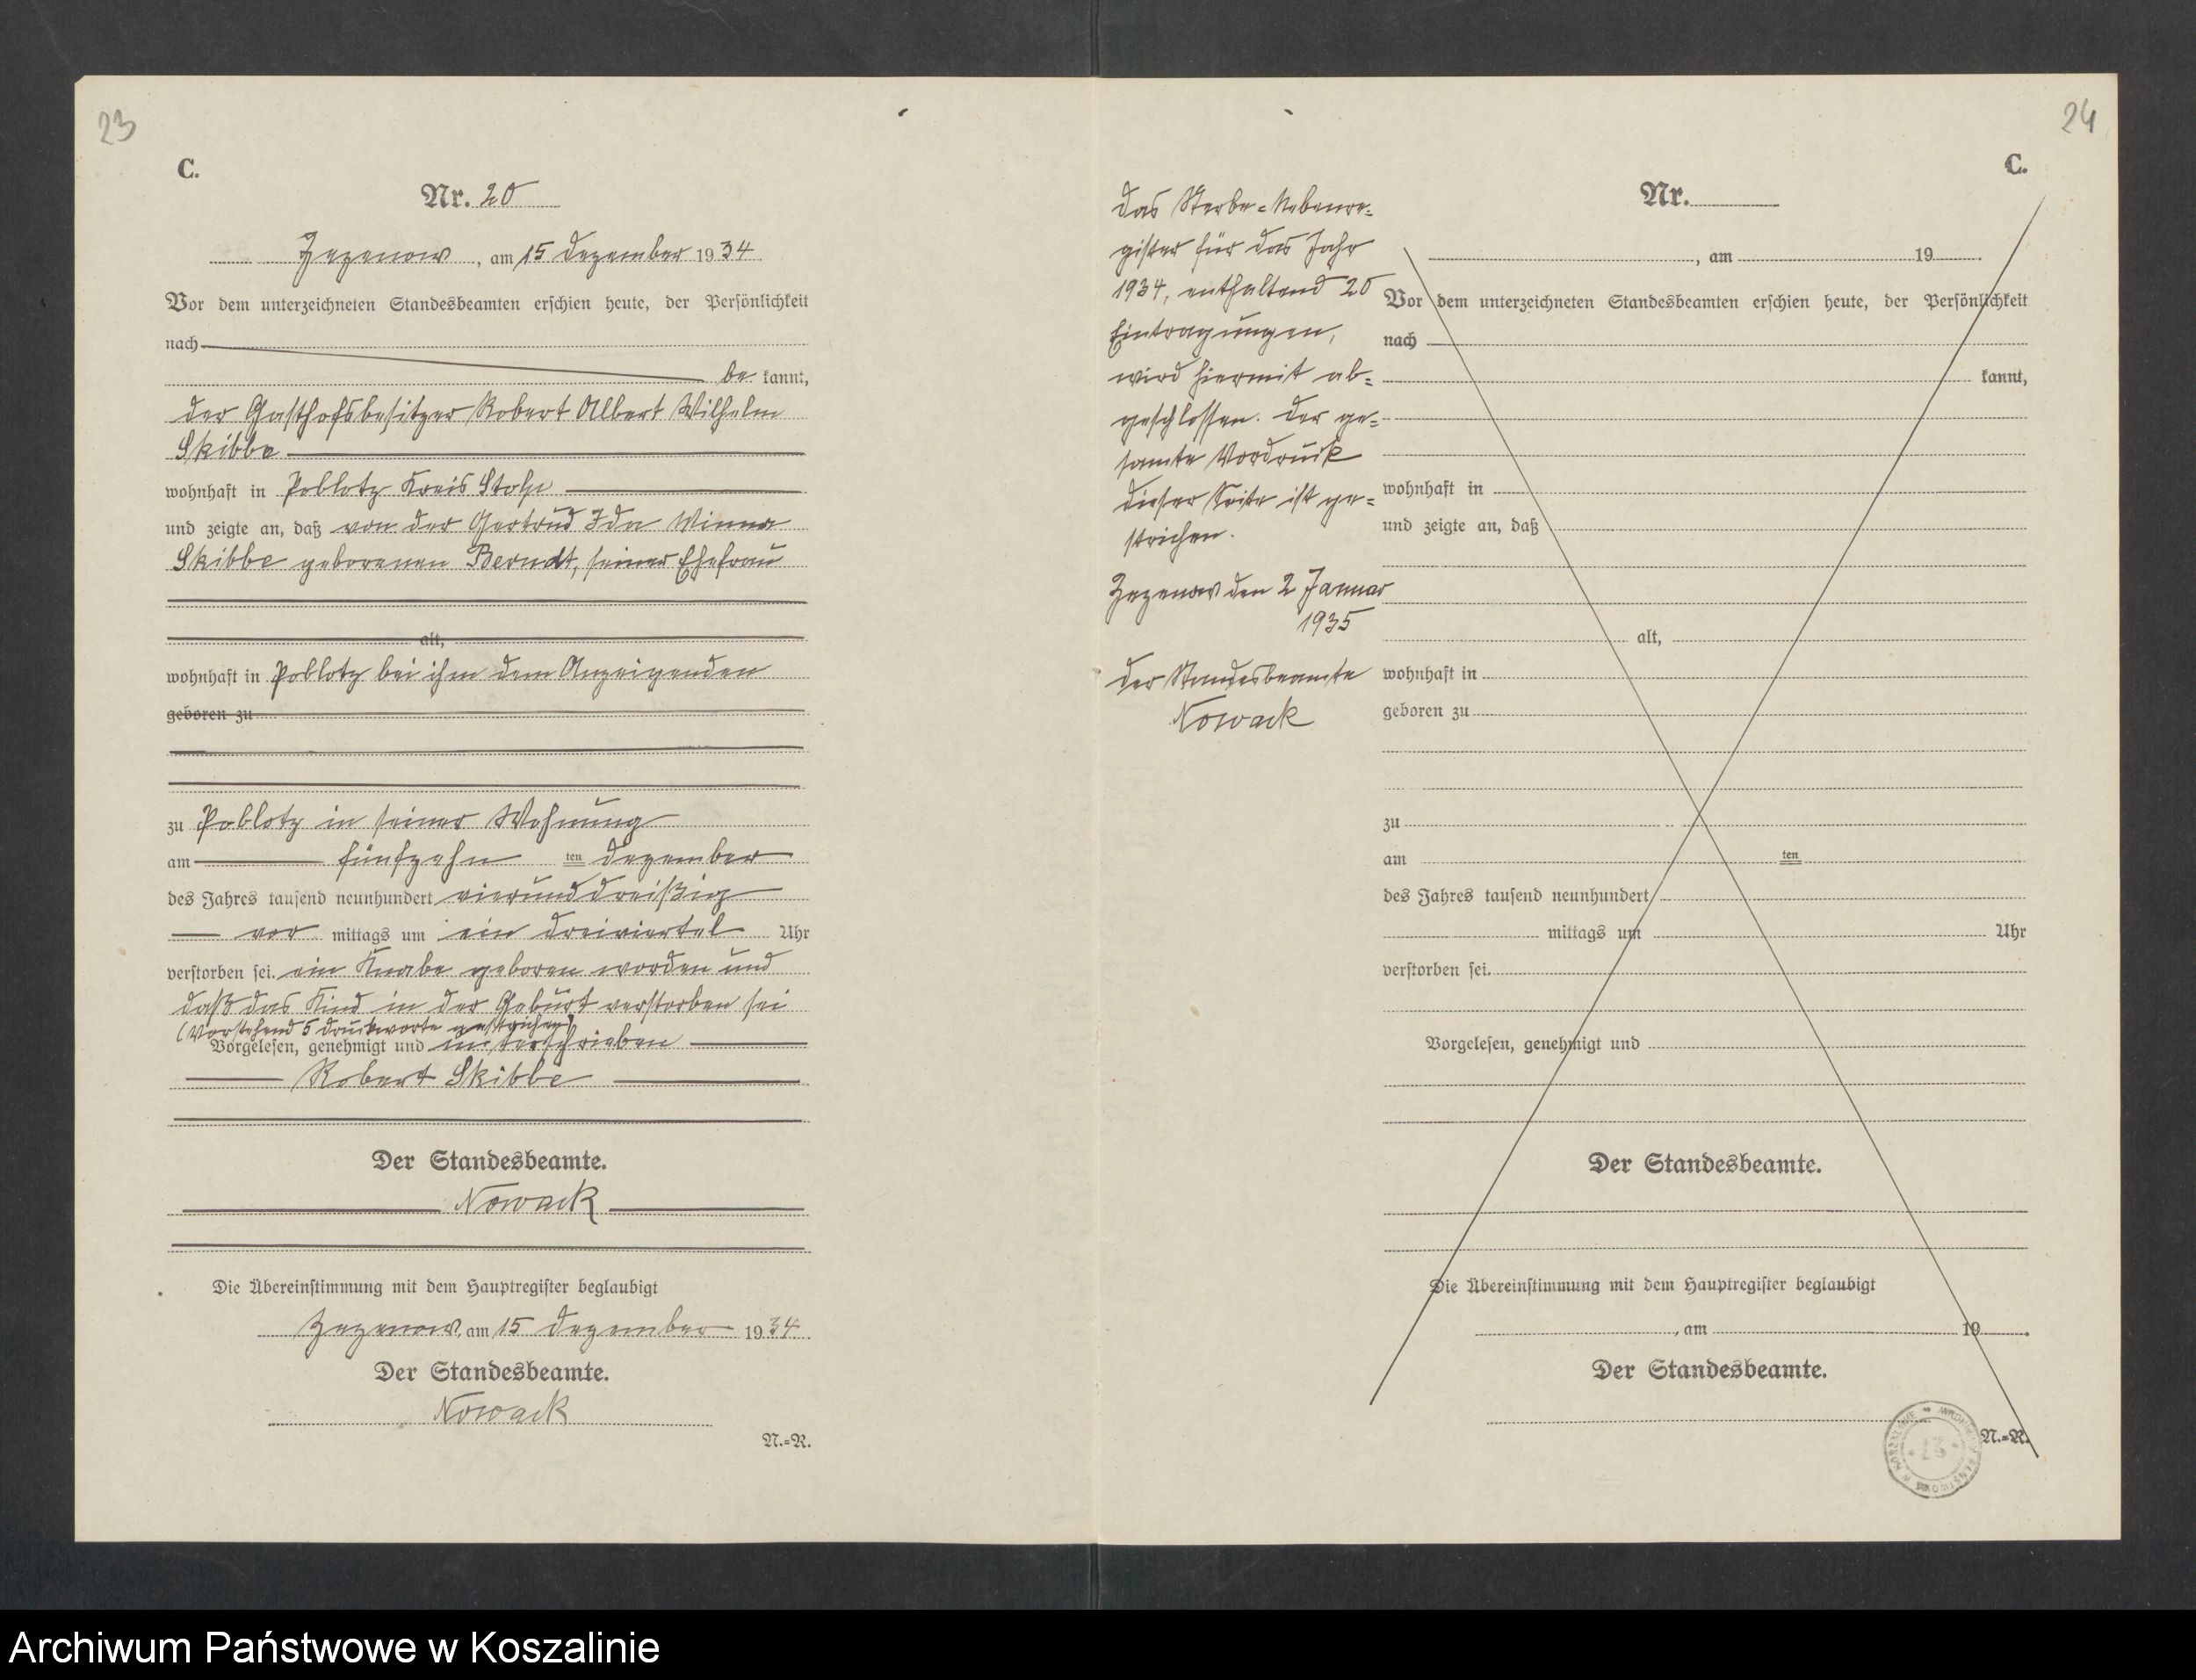 23
C.
Nr. 20
Zezenow, am 15 Dezember 1934
Vor dem unterzeichneten Standesbeamten erschien heute, der Persönlichkeit
nach
be kannt,
der Gasthofsbesitzer Robert Albert Wilhelm
Skibbe
wohnhaft in Poblotz Kreis Stolp
und zeigte an, daß von der Gertrud Ida Minna
Skibbe geborenen Berndt, seiner Ehefrau
alt,
wohnhaft in Poblotz bei ihm dem Anzeigenden
geboren zu
zu Poblotz in seiner Wohnung
am fünfzehn ten Dezember
des Jahres tausend neunhundert vierunddreißig
vor mittags um ein dreiviertel Uhr
verstorben sei. ein Knabe geboren worden und
daß das Kind in der Geburt verstorben sei
(Vorstehend 5 Druckworte gestrichen)
Vorgelesen, genehmigt und unterschrieben
Robert Skibbe
Der Standesbeamte.
Nowack
Die Übereinstimmung mit dem Hauptregister beglaubigt
Zezenow, am 15 Dezember 1934.
Der Standesbeamte.
Nowack
N.=R.
24
C.
Das Sterbe=Nebenre=
gister für das Jahr
1934, enthaltend 20
Eintragungen,
wird hiermit ab=
geschlossen. Der ge=
samte Vordruck
dieser Seite ist ge=
strichen.
Zezenow den 2 Januar
1935
Der Standesbeamte
Nowack
Nr.
, am 19 .
Vor dem unterzeichneten Standesbeamten erschien heute, der Persönlichkeit
nach
kannt,
wohnhaft in
und zeigte an, daß
alt,
wohnhaft in
geboren zu
zu
am ten
des Jahres tausend neunhundert
mittags um Uhr
verstorben sei.
Vorgelesen, genehmigt und
Der Standesbeamte.
Die Übereinstimmung mit dem Hauptregister beglaubigt
, am 19 .
Der Standesbeamte.
N.=R.
Archiwum Państwowe w Koszalinie